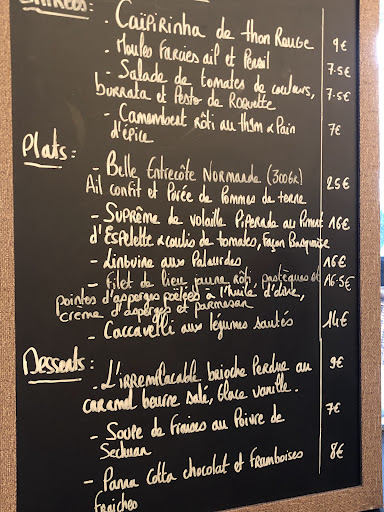 Entrées:
- Caïpirinha de thon Rouge 9€
- Moules Farcies ail et Persil 7.5€
- Salade de tomates de couleurs, 7.5€
burrata et Pesto de Roquette
- Camembert rôti au thym & Pain 7€
d'épice
Plats:
- Belle Entrecôte Normande (300GR) 25€
Ail confit et Purée de Pommes de terre
- Suprême de volaille Piperade au Piment 16€
d'Espelette & coulis de tomates, Façon Basquaise
- Linguine aux Palourdes 16€
- Filet de lieu jaune rôti, pastèques et 16.5€
pointes d'asperges poêlées à l'huile d'olive,
crème d'asperges et parmesan
- Caccavelli aux légumes sautés 14€
Desserts:
- L'irremplacable brioche Perdue au 9€
caramel beurre salé, Glace vanille.
- Soupe de Fraises au Poivre de 7€
Sechuan
- Panna Cotta chocolat et Framboises 8€
fraîches